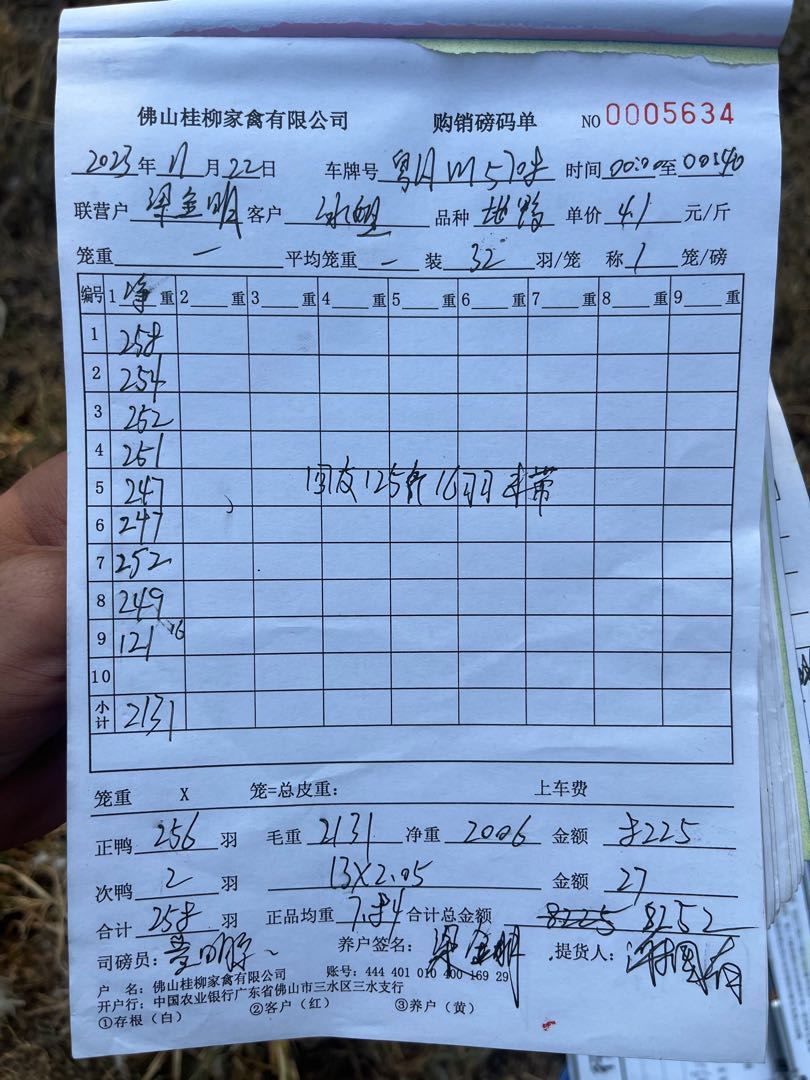 佛山桂柳家禽有限公司 购销磅码单 NO 0005634
2023年11月22日 车牌号 粤 时间 00:00至00:40
联营户 梁金明 客户 品种 单价 4.1 元/斤
笼重 — 平均笼重 — 装 32 羽/笼 称 1 笼/磅
编号 1 净 重 2 重 3 重 4 重 5 重 6 重 7 重 8 重 9 重
1 258
2 254
3 252
4 251
5 247
6 247
7 252
8 249
9 121 16
10
小计 2131
国友125斤16羽 带
笼重 X 笼=总皮重: 上车费
正鸭 256 羽 毛重 2131 净重 2006 金额 8225
次鸭 2 羽 13X2.05 金额 27
合计 258 羽 正品均重 7.84 合计总金额 8225 8252
司磅员: 养户签名: 梁金明 提货人:
户 名: 佛山桂柳家禽有限公司 账号: 444 401 010 400 169 29
开户行: 中国农业银行广东省佛山市三水区三水支行
①存根(白) ②客户(红) ③养户(黄)